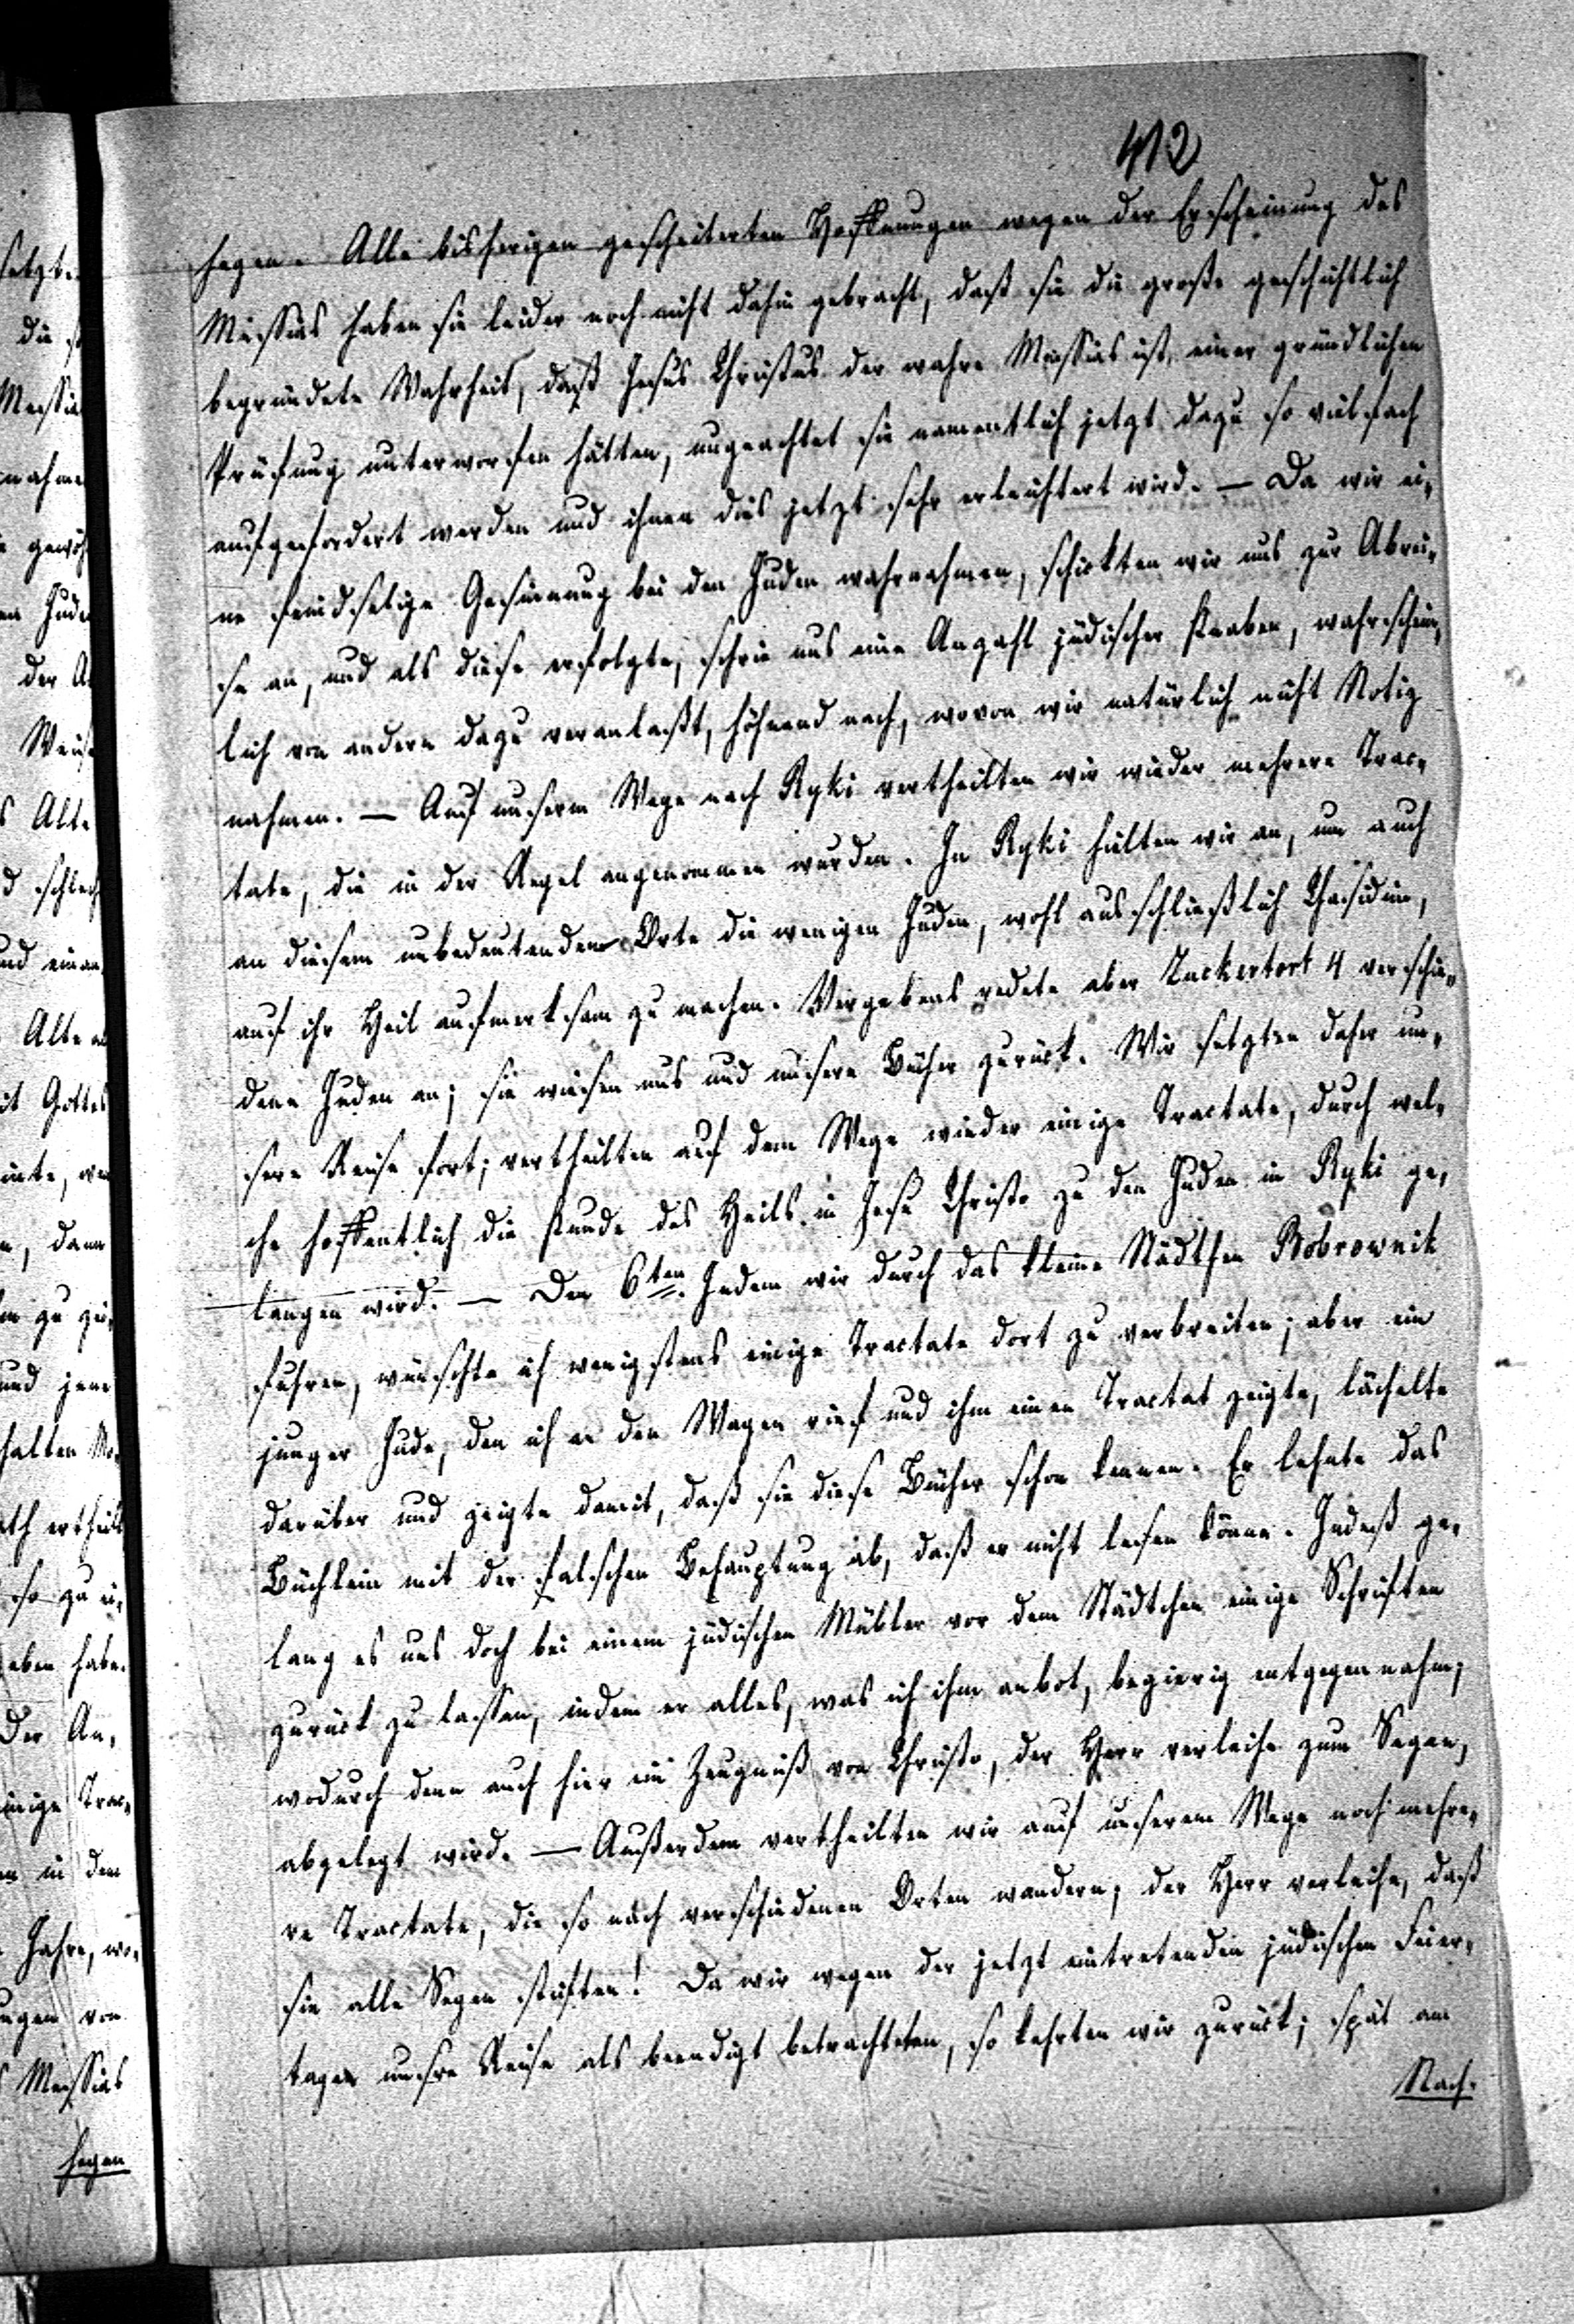 412
hegen. Alle bisherigen gescheiterten Hoffnungen wegen der Erscheinung des
Messias haben sie leider noch nicht dahin gebracht, daß sie die große geschichtlich
begründete Wahrheit, daß Jesus Christus der wahre Messias ist, einer gründlichen
Prüfung unterworfen hätten, ungeachtet sie namentlich jetzt dazu so vielfach
aufgefordert werden und ihnen dies jetzt sehr erleichtert wird. — Da wir ei-
ne feindselige Gesinnung bei den Juden wahrnahmen, schickten wir uns zur Abrei-
se an, und als diese erfolgte, schrie uns eine Anzahl jüdischer Knaben, wahrschein-
lich von andern dazu veranlaßt, höhnend nach, wovon wir natürlich nicht Notiz
nahmen. — Auf unserm Wege nach Ryki vertheilten wir wieder mehrere Trac-
tate, die in der Regel angenommen wurden. In Ryki hielten wir an, um auch
an diesem unbedeutenden Orte die wenigen Juden, wohl ausschließlich Chasidim,
auf ihr Heil aufmerksam zu machen. Vergebens redete aber Zuckertort 4 verschie-
dene Juden an; sie wiesen uns und unsere Bücher zurück. Wir setzten daher un-
sere Reise fort; vertheilten auf dem Wege wieder einige Tractate, durch wel-
che hoffentlich die Kunde des Heils in Jesu Christo zu den Juden in Ryki ge-
langen wird. — Den 6ten. Indem wir durch das kleine Städtchen Bobrownik
fuhren, wünschte ich wenigstens einige Tractate dort zu verbreiten; aber ein
junger Jude, den ich an den Wagen rief und ihm einen Tractat zeigte, lächelte
darüber und zeigte damit, daß sie diese Bücher schon kennen. Er lehnte das
Büchlein mit der falschen Behauptung ab, daß er nicht lesen könne. Indeß ge-
lang es uns doch bei einem jüdischen Müller vor dem Städtchen einige Schriften
zurück zu lassen, indem er alles, was ich ihm anbot, begierig entgegen nahm;
wodurch denn auch hier ein Zeugniß von Christo, der Herr verleihe zum Segen,
abgelegt wird. — Außerdem vertheilten wir auf unserem Wege noch mehre-
re Tractate, die so nach verschiedenen Orten wandern; der Herr verleihe, daß
sie alle Segen stiften! Da wir wegen der jetzt eintretenden jüdischen Feier-
tage unsre Reise als beendigt betrachteten, so kehrten wir zurück; spät am
Nach-